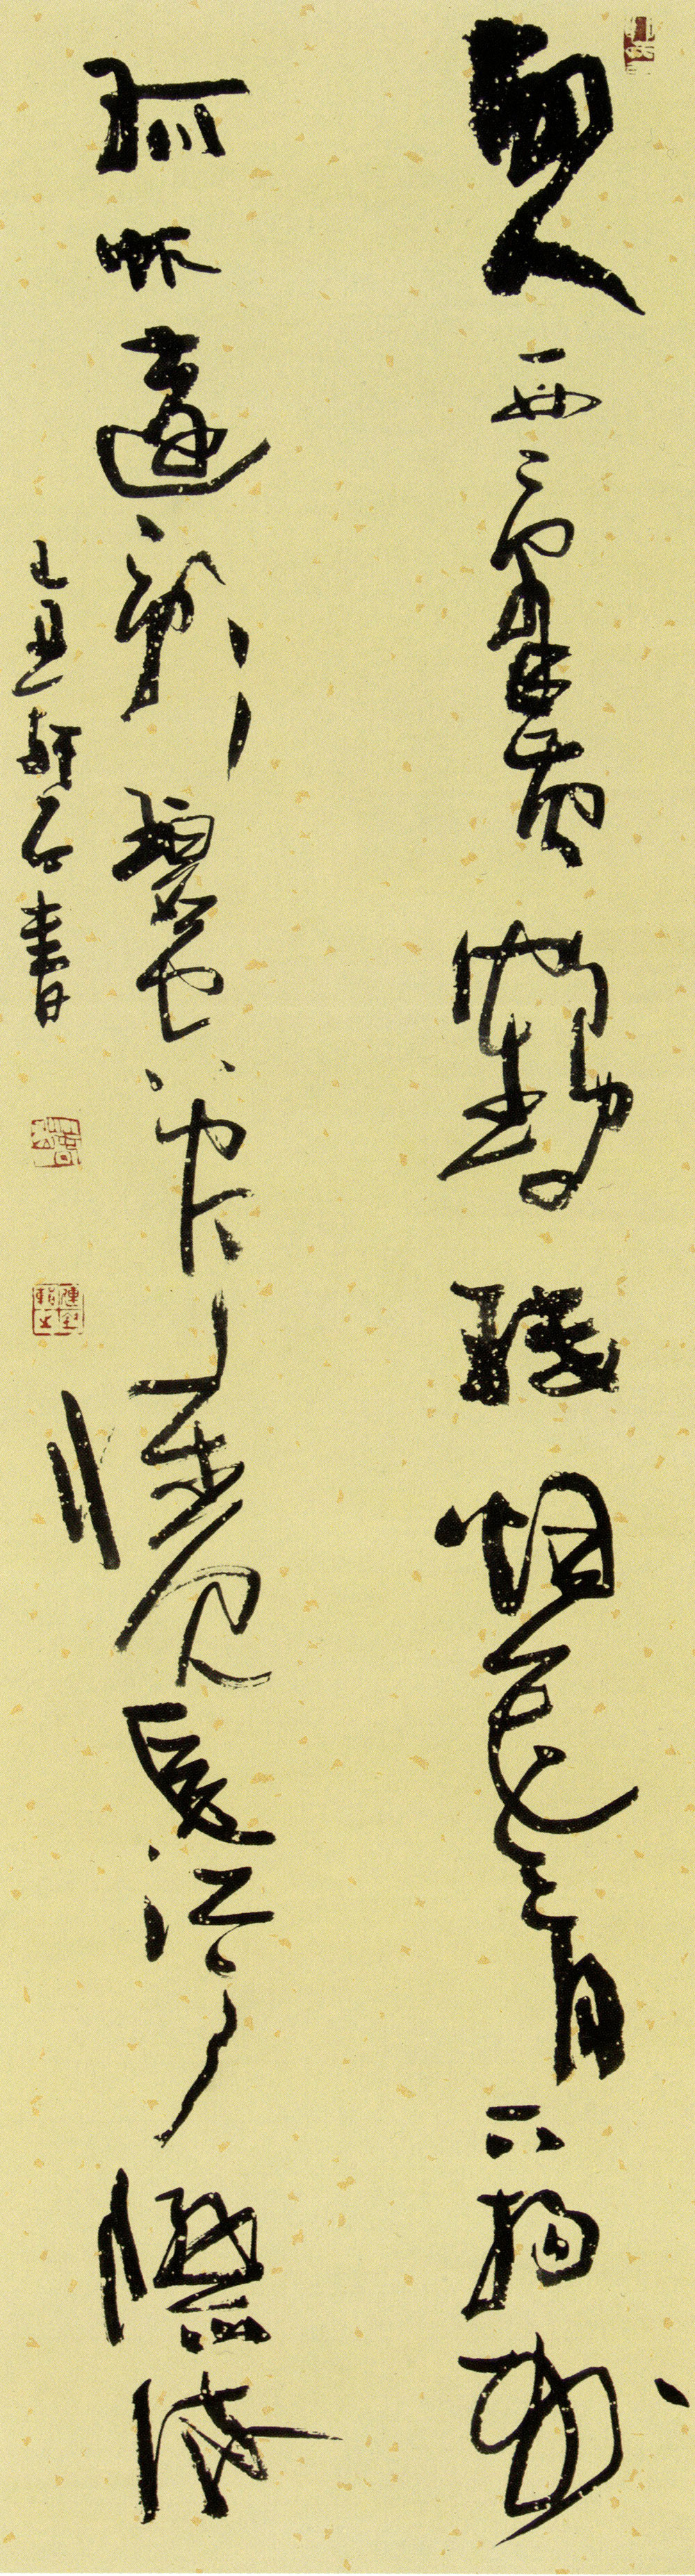 故人西辭黃鶴樓烟花三月下揚州
孤帆遠影碧空盡惟見長江天際流
己丑軒石書